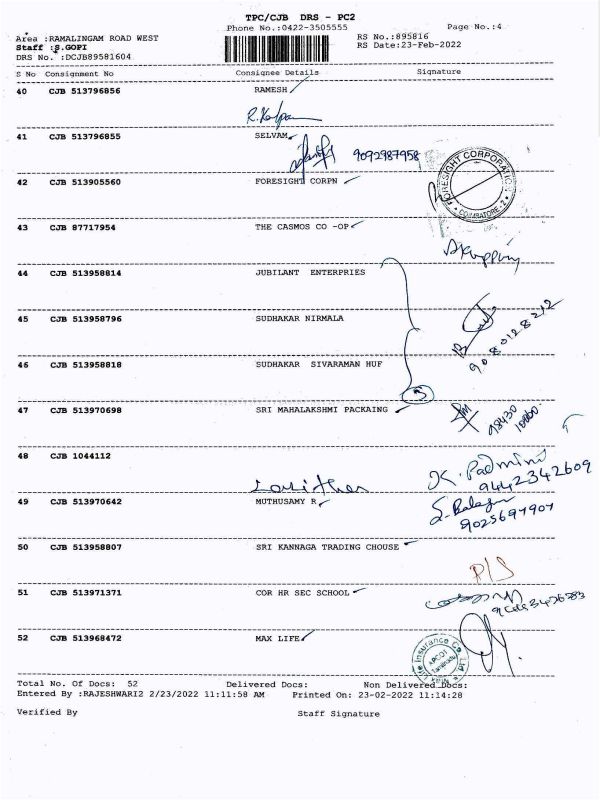 TPC/CJB DRS - PC2
Phone No.:0422-3505555 Page No.:4
Area :RAMALINGAM ROAD WEST RS No.:895816
Staff :S.GOPI RS Date:23-Feb-2022
DRS No. :DCJB89581604
S No Consignment No Consignee Details Signature
40 CJB 513796856 RAMESH
41 CJB 513796855 SELVAM
9092987958
42 CJB 513905560 FORESIGHT CORPN
FORESIGHT CORPORATION
COIMBATORE - 2
43 CJB 87717954 THE CASMOS CO -OP
44 CJB 513958814 JUBILANT ENTERPRIES
45 CJB 513958796 SUDHAKAR NIRMALA
9080128212
46 CJB 513958818 SUDHAKAR SIVARAMAN HUF
5
47 CJB 513970698 SRI MAHALAKSHMI PACKAING
98430
48 CJB 1044112
K. Padmini
9442342609
49 CJB 513970642 MUTHUSAMY R
9025697907
50 CJB 513958807 SRI KANNAGA TRADING CHOUSE
P/S
51 CJB 513971371 COR HR SEC SCHOOL
52 CJB 513968472 MAX LIFE
Total No. Of Docs: 52 Delivered Docs: Non Delivered Docs:
Entered By :RAJESHWARI2 2/23/2022 11:11:58 AM Printed On: 23-02-2022 11:14:28
Verified By Staff Signature